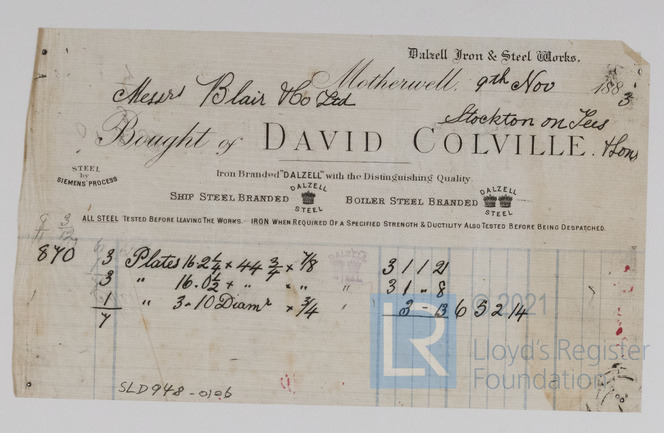 Dalzell Iron & Steel Works.
Motherwell. 9th Nov 1883
Messrs Blair & Co Ltd
Stockton on Tees
Bought of DAVID COLVILLE. & Sons
Iron Branded "DALZELL" with the Distinguishing Quality.
STEEL
by
SIEMENS' PROCESS
SHIP STEEL BRANDED DALZELL STEEL BOILER STEEL BRANDED DALZELL STEEL
ALL STEEL TESTED BEFORE LEAVING THE WORKS. IRON WHEN REQUIRED OF A SPECIFIED STRENGTH & DUCTILITY ALSO TESTED BEFORE BEING DESPATCHED.
870 3 Plates 16.2¼ × 44¾ × 7/8 31 1 21
3 " 16.0½ × " × " " 31 " 8
1 " 3-10 Diamr × ¾ 3 - 13 65 2 14
7
DALZELL
STEEL
LR
© 2021
Lloyd's Register
Foundation
SLD948-0106